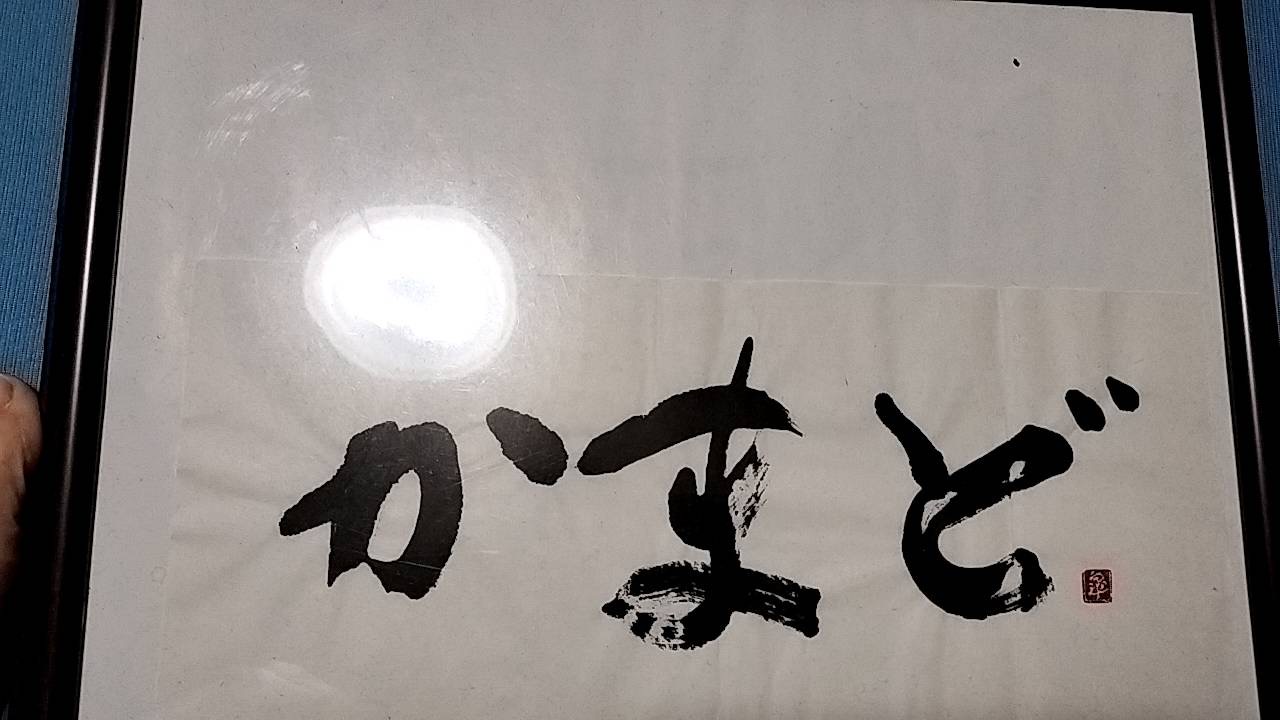 かまど